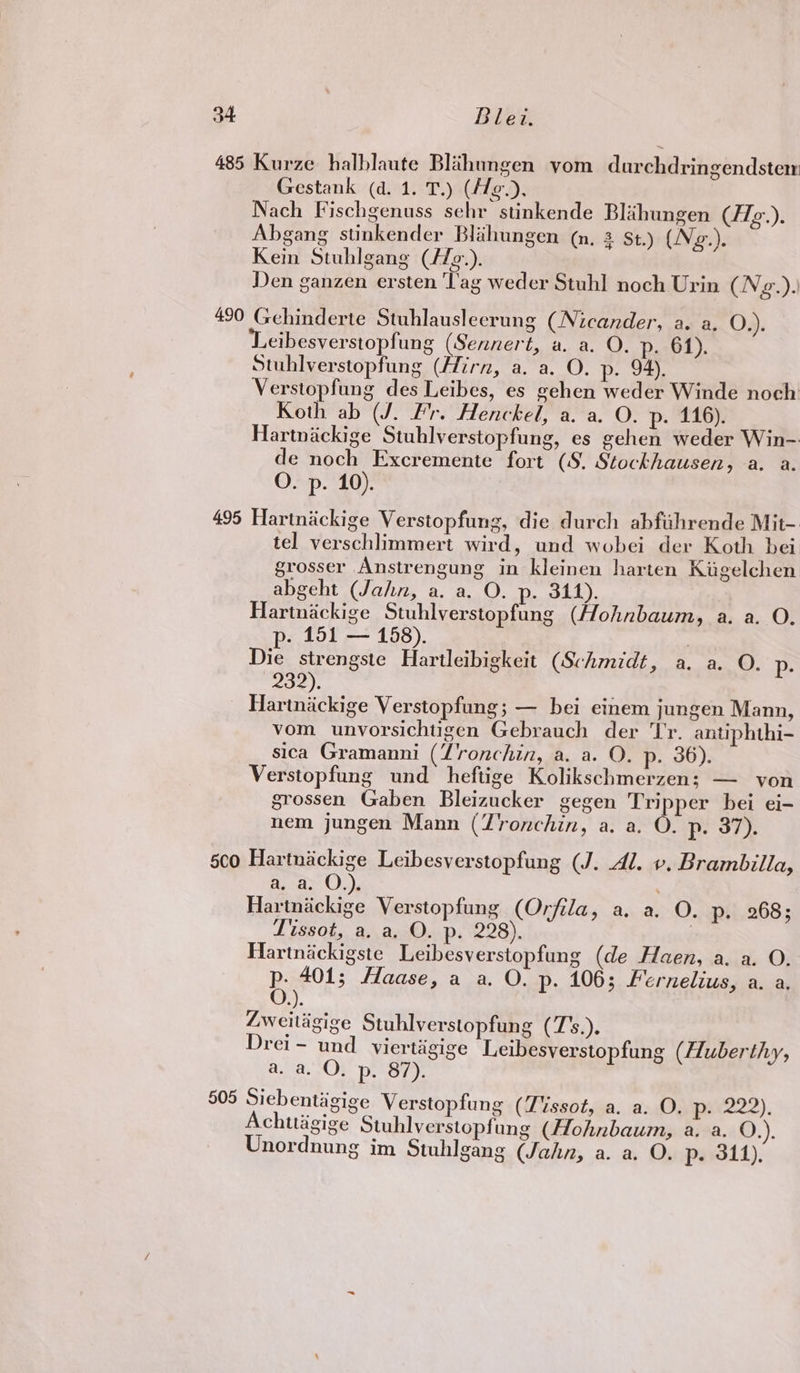 34 Blei.
485 Kurze halblaute Blähungen vom durchdringendsten
Gestank (d. 1. T.) (Hg.).
Nach Fischgenuss sehr stinkende Blähungen (Hg.).
Abgang stinkender Blähungen (n. ¾ St.) (Ng.).
Kein Stuhlgang (Hg.).
Den ganzen ersten Tag weder Stuhl noch Urin (Ng.).
490 Gehinderte Stuhlausleerung (Nicander, a. a. O.).
Leibesverstopfung (Sennert, a. a. O. p. 61).
Stuhlverstopfung (Hirn, a. a. O. p. 94).
Verstopfung des Leibes, es gehen weder Winde noch
Koth ab (J. Fr. Henckel, a. a. O. p. 116).
Hartnäckige Stuhlverstopfung, es gehen weder Win-
de noch Excremente fort (S. Stockhausen, a. a.
O. p. 10).
495 Hartnäckige Verstopfung, die durch abführende Mit-
tel verschlimmert wird, und wobei der Koth bei
grosser Anstrengung in kleinen harten Kügelchen
abgeht (Jahn, a. a. O. p. 311).
Hartnäckige Stuhlverstopfung (Hohnbaum, a. a. O.
p. 151 — 158).
Die strengste Hartleibigkeit (Schmidt, a. a. O. p.
232).
Hartnäckige Verstopfung; — bei einem jungen Mann,
vom unvorsichtigen Gebrauch der Tr. antiphthi-
sica Gramanni (Tronchin, a. a. O. p. 36).
Verstopfung und heftige Kolikschmerzen; — von
grossen Gaben Bleizucker gegen Tripper bei ei-
nem jungen Mann (Tronchin, a. a. O. p. 37).
500 Hartnäckige Leibesverstopfung (J. Al. v. Brambilla,
a. a. O.).
Hartnäckige Verstopfung (Orfila, a. a. O. p. 268;
Tissot, a. a. O. p. 228).
Hartnäckigste Leibesverstopfung (de Haen, a. a. O.
p. 401; Haase, a a. O. p. 106; Fernelius, a. a.
O.).
Zweitägige Stuhlverstopfung (Ts.).
Drei- und viertägige Leibesverstopfung (Huberthy,
a. a. O. p. 87).
505 Siebentägige Verstopfung (Tissot, a. a. O. p. 222).
Achttägige Stuhlverstopfung (Hohnbaum, a. a. O.).
Unordnung im Stuhlgang (Jahn, a. a. O. p. 311).